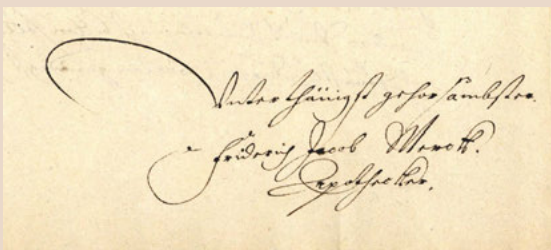 Unterthänigst gehorsambster.
Friderich Jacob Merck.
Apothecker.